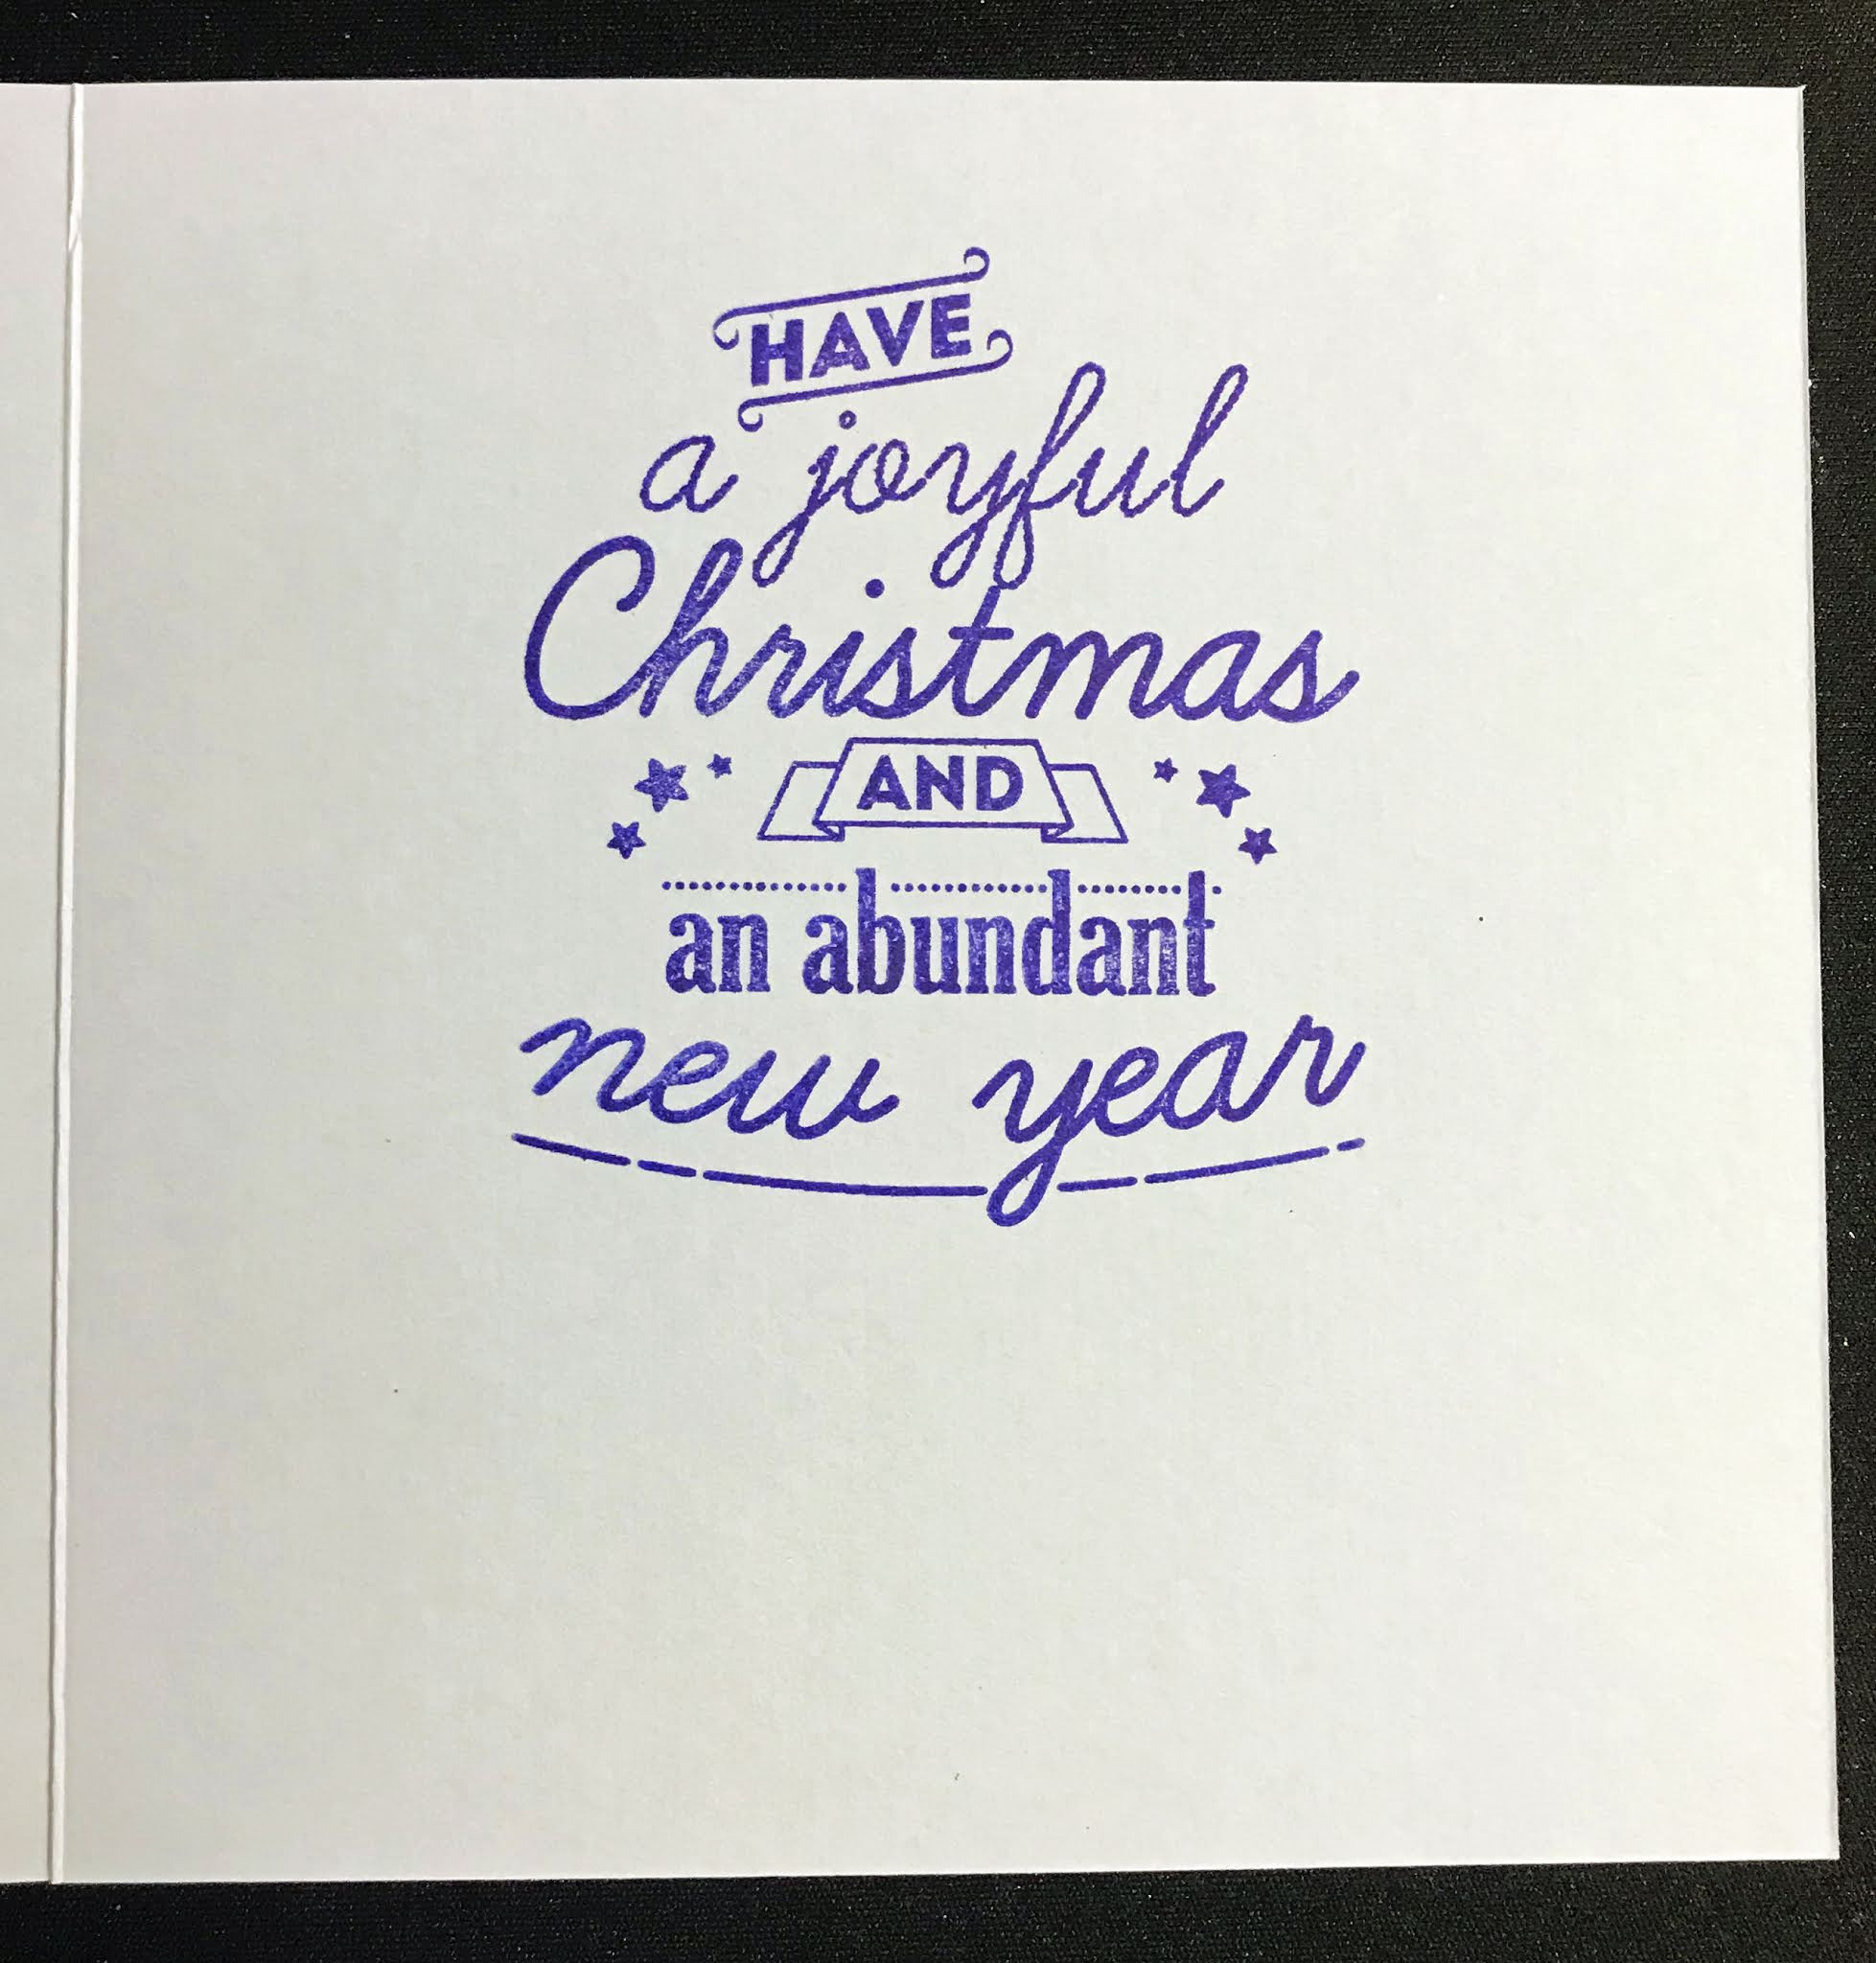 HAVE
a joyful
Christmas
AND
an abundant
new year